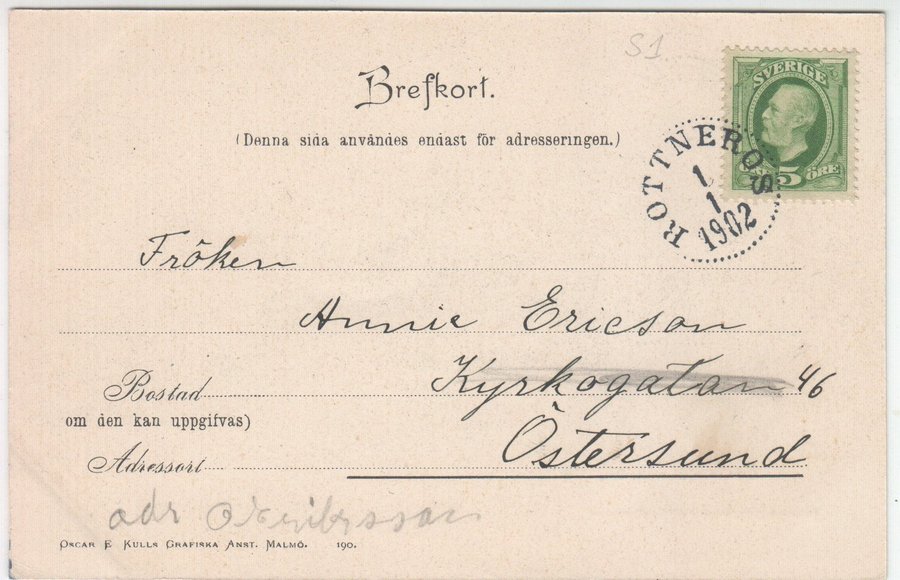 S1
Brefkort.
(Denna sida användes endast för adresseringen.)
SVERIGE
5 ÖRE
ROTTNEROS
1
1
1902
Fröken
Annie Ericson
Bostad
Kyrkogatan 46
om den kan uppgifvas)
Östersund
Adressort
adr
OSCAR E KULLS GRAFISKA ANST. MALMÖ. 190.